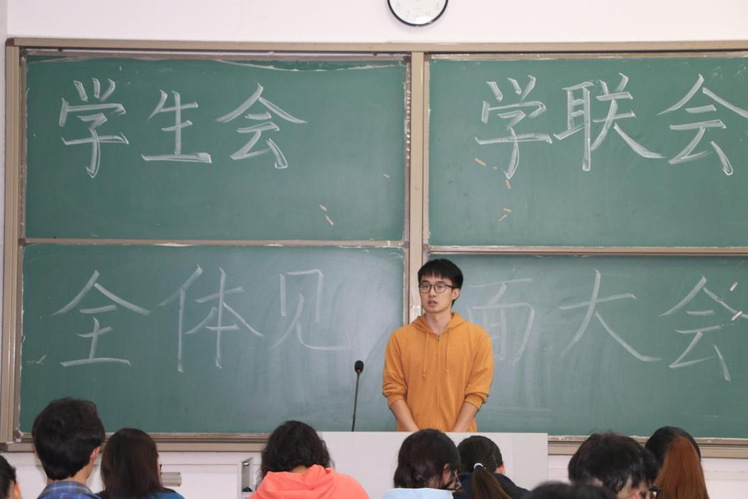 学生会 学联会
全体见面大会